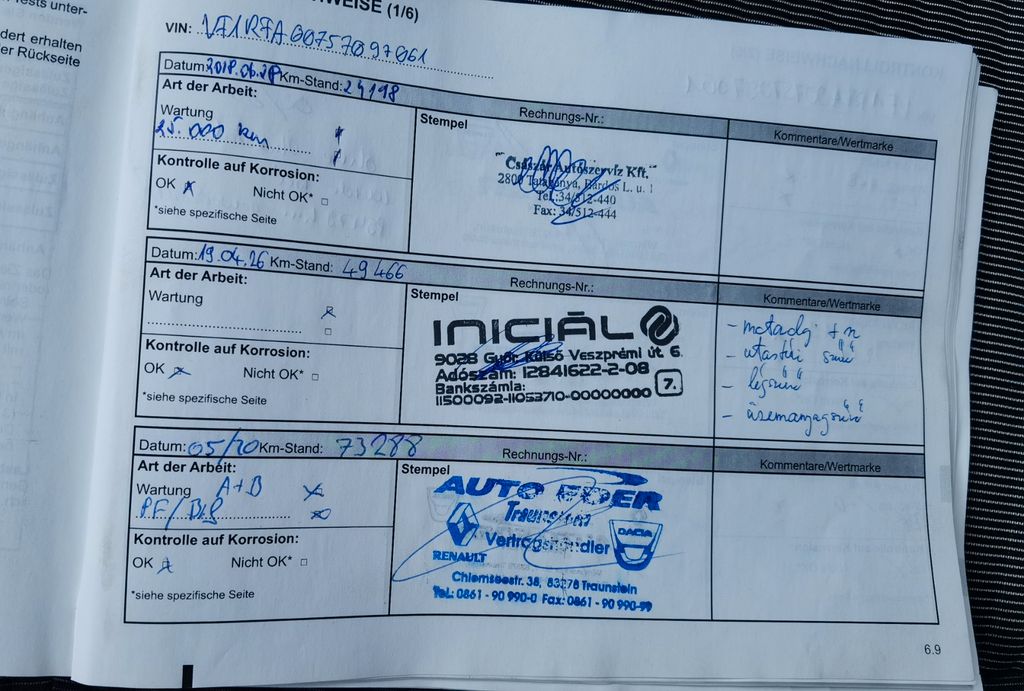 ests unter-
dert erhalten
er Rückseite
WEISE (1/6)
VIN: VF1RFA00757097061
Datum: 2018.06.28 Km-Stand: 24198
Rechnungs-Nr.:
Kommentare/Wertmarke
Art der Arbeit:
Stempel
Wartung
25.000 km
Kontrolle auf Korrosion:
OK Nicht OK*
*siehe spezifische Seite
"Császár Autószerviz Kft."
2800 Tatabánya, Bárdos L. u. 1
Tel.:34/512-440
Fax: 34/512-444
Datum: 19.04.26 Km-Stand: 49466
Rechnungs-Nr.:
Kommentare/Wertmarke
Art der Arbeit:
Stempel
Wartung
Kontrolle auf Korrosion:
OK Nicht OK*
*siehe spezifische Seite
INICIÁL
9028 Győr Külső Veszprémi út. 6.
Adószám: 12841622-2-08
Bankszámla:
11500092-11053710-00000000 7.
Datum: 05/20 Km-Stand: 73288
Rechnungs-Nr.:
Kommentare/Wertmarke
Art der Arbeit:
Stempel
Wartung A+B
Kontrolle auf Korrosion:
OK Nicht OK*
*siehe spezifische Seite
AUTO EDER
Traunstein
Vertragshändler
RENAULT
DACIA
Chiemseestr. 38, 83278 Traunstein
Tel.: 0861 - 90 990-0 Fax: 0861 - 90 990-99
6.9